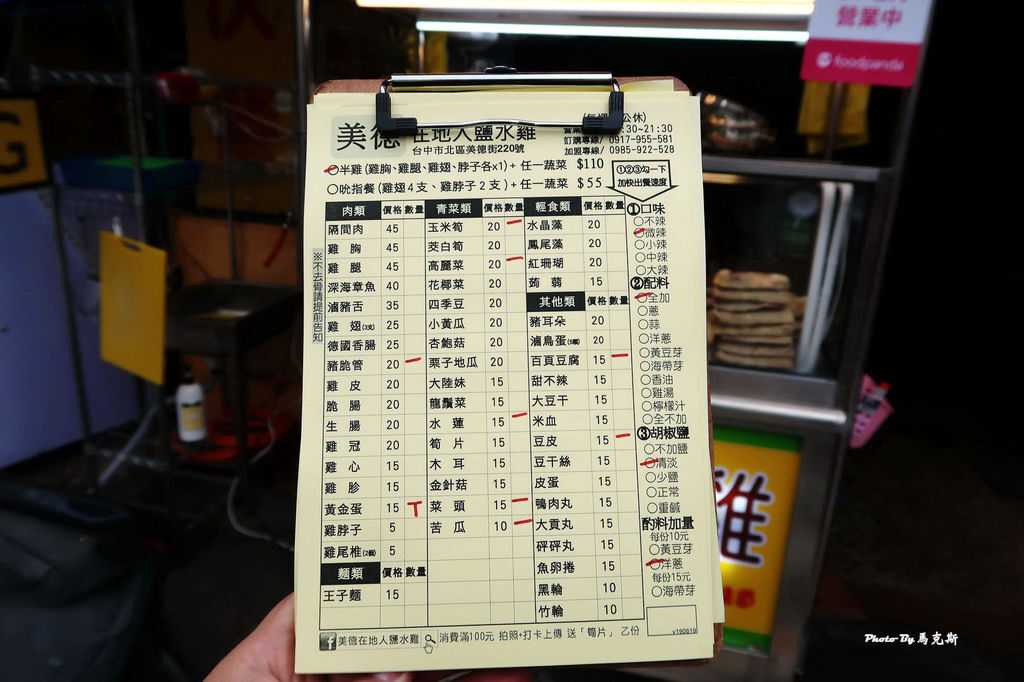 營業中
foodpanda
美德 在地人鹽水雞
台中市北區美德街220號
公休)
:30~21:30
訂購專線/ 0917-955-581
加盟專線/ 0985-922-528
○半雞(雞胸、雞腿、雞翅、脖子各x1)+ 任一蔬菜 $110
○吮指餐(雞翅4支、雞脖子2支)+ 任一蔬菜 $55
①②③勾一下
加快出餐速度
※不去骨請提前告知
肉類 價格 數量
隔間肉 45
雞胸 45
雞腿 45
深海章魚 40
滷豬舌 35
雞翅(3支) 25
德國香腸 25
豬脆管 20
雞皮 20
脆腸 20
生腸 20
雞冠 20
雞心 15
雞胗 15
黃金蛋 15
雞脖子 5
雞尾椎(2個) 5
麵類 價格 數量
王子麵 15
青菜類 價格 數量
玉米筍 20
茭白筍 20
高麗菜 20
花椰菜 20
四季豆 20
小黃瓜 20
杏鮑菇 20
栗子地瓜 20
大陸妹 15
龍鬚菜 15
水蓮 15
筍片 15
木耳 15
金針菇 15
菜頭 15
苦瓜 10
輕食類 價格 數量
水晶藻 20
鳳尾藻 20
紅珊瑚 20
蒟蒻 15
其他類 價格 數量
豬耳朵 20
滷鳥蛋(5個) 20
百頁豆腐 15
甜不辣 15
大豆干 15
米血 15
豆皮 15
豆干絲 15
皮蛋 15
鴨肉丸 15
大貢丸 15
砰砰丸 15
魚卵捲 15
黑輪 10
竹輪 10
①口味
○不辣
○微辣
○小辣
○中辣
○大辣
②配料
○全加
○蔥
○蒜
○洋蔥
○黃豆芽
○海帶芽
○香油
○雞湯
○檸檬汁
○全不加
③胡椒鹽
○不加鹽
○清淡
○少鹽
○正常
○重鹹
酌料加量
每份10元
○黃豆芽
○洋蔥
每份15元
○海帶芽
美德在地人鹽水雞 消費滿100元 拍照+打卡上傳 送「筍片」乙份
v190619
雞
Photo By 馬克斯